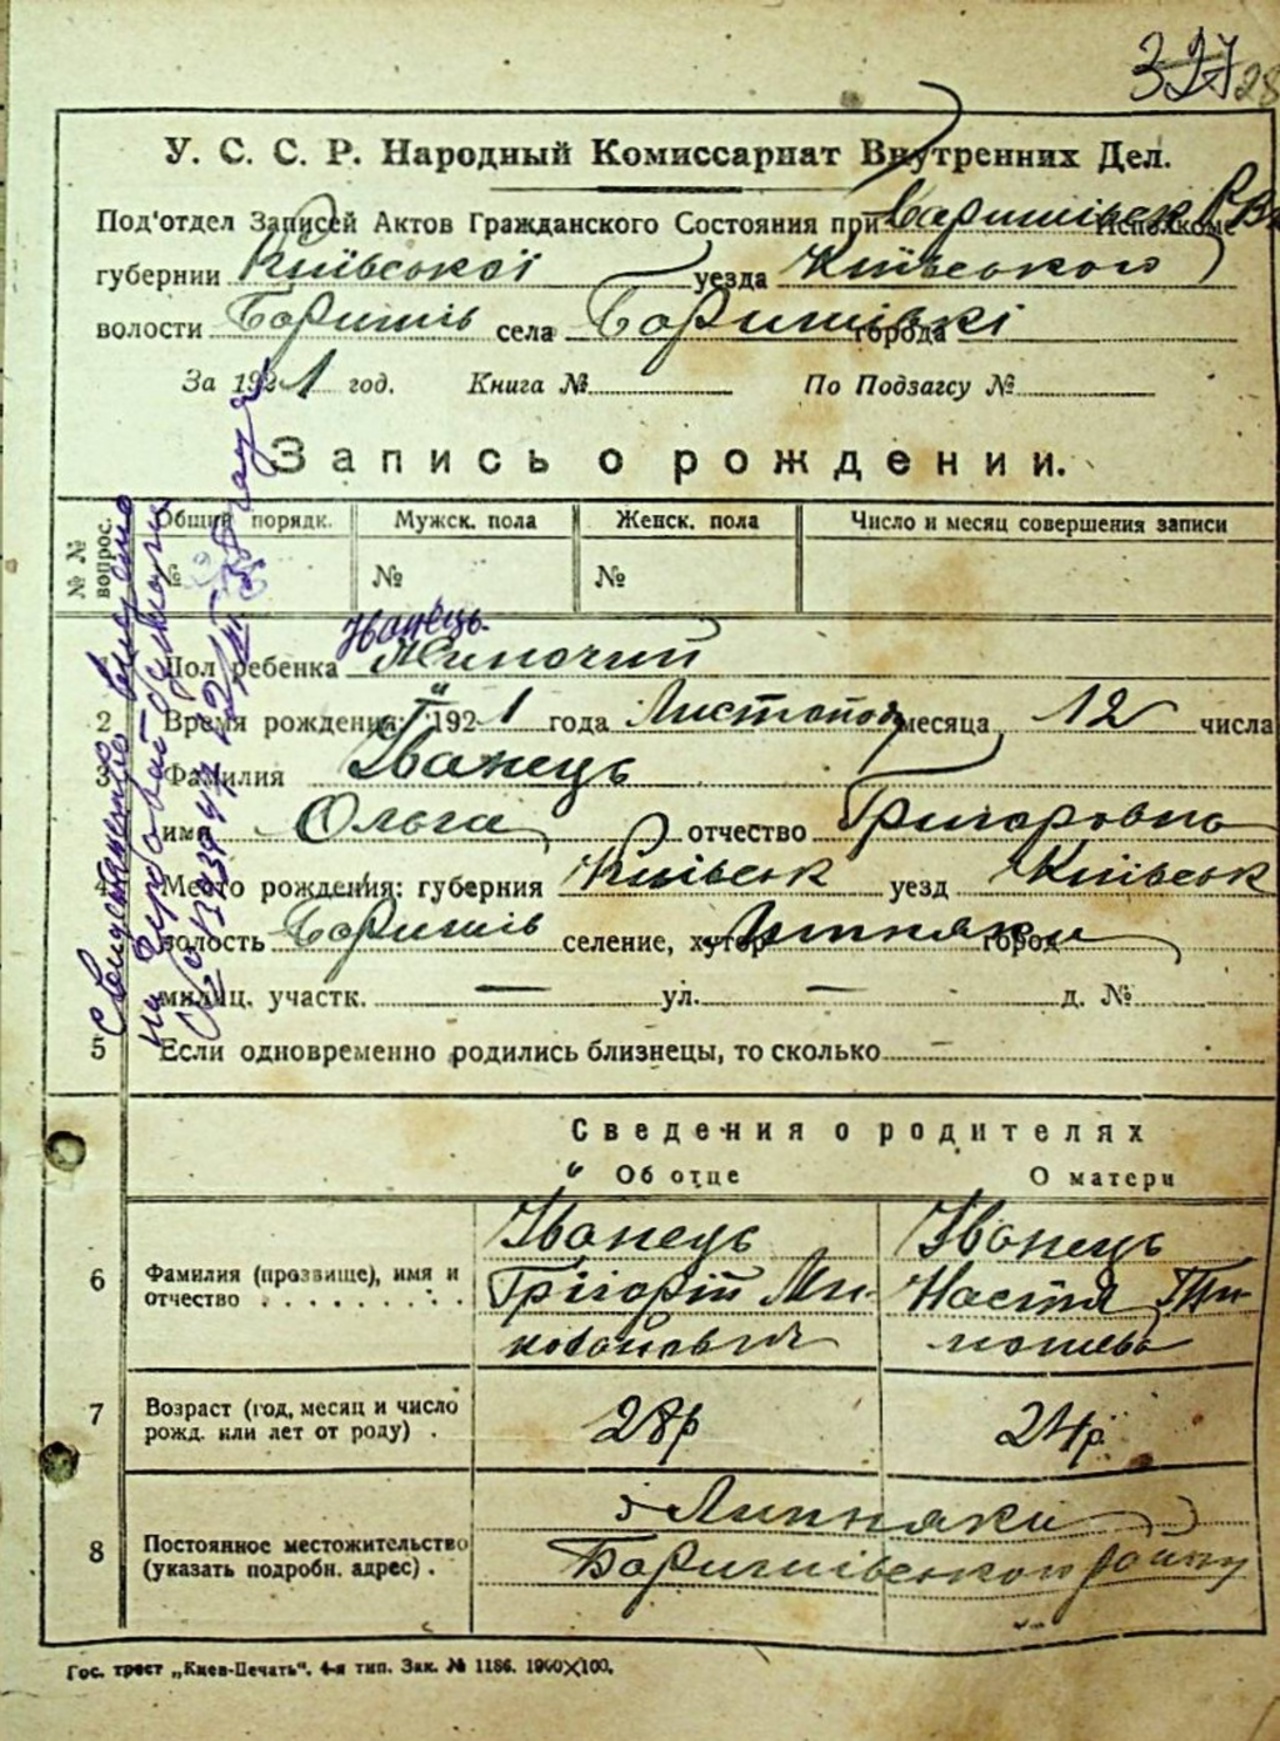 327 28
У. С. С. Р. Народный Комиссариат Внутренних Дел.
Под'отдел Записей Актов Гражданского Состояния при Баришівськ Исполкоме
губернии Київської уезда Київського
волости Баришів села Баришівкі города
За 1921 год. Книга № По Подзагсу №
Запись о рождении.
№ № вопрос. Общий порядк. Мужск. пола Женск. пола Число и месяц совершения записи
№ № №
Иванець
Пол ребенка Жиночий
2 Время рождения: 1921 года Листопад месяца 12 числа
3 Фамилия Іванець
имя Ольга отчество Григоровна
4 Место рождения: губерния Київськ уезд Київськ
волость Баришів селение, хутор Липняки город
милиц. участк. — ул. — д. №
5 Если одновременно родились близнецы, то сколько —
Сведения о родителях
Об отце О матери
6 Фамилия (прозвище), имя и отчество
Іванець Іванець
Грігорій Ми- Настя Ти-
7 Возраст (год, месяц и число рожд. или лет от роду) . 28р 24р.
8 Постоянное местожительство (указать подробн. адрес) .
Липняки
Баришівського району
Гос. трест „Киев-Печать“. 4-я тип. Зак. № 1186. 1900×100.
Свидетельство